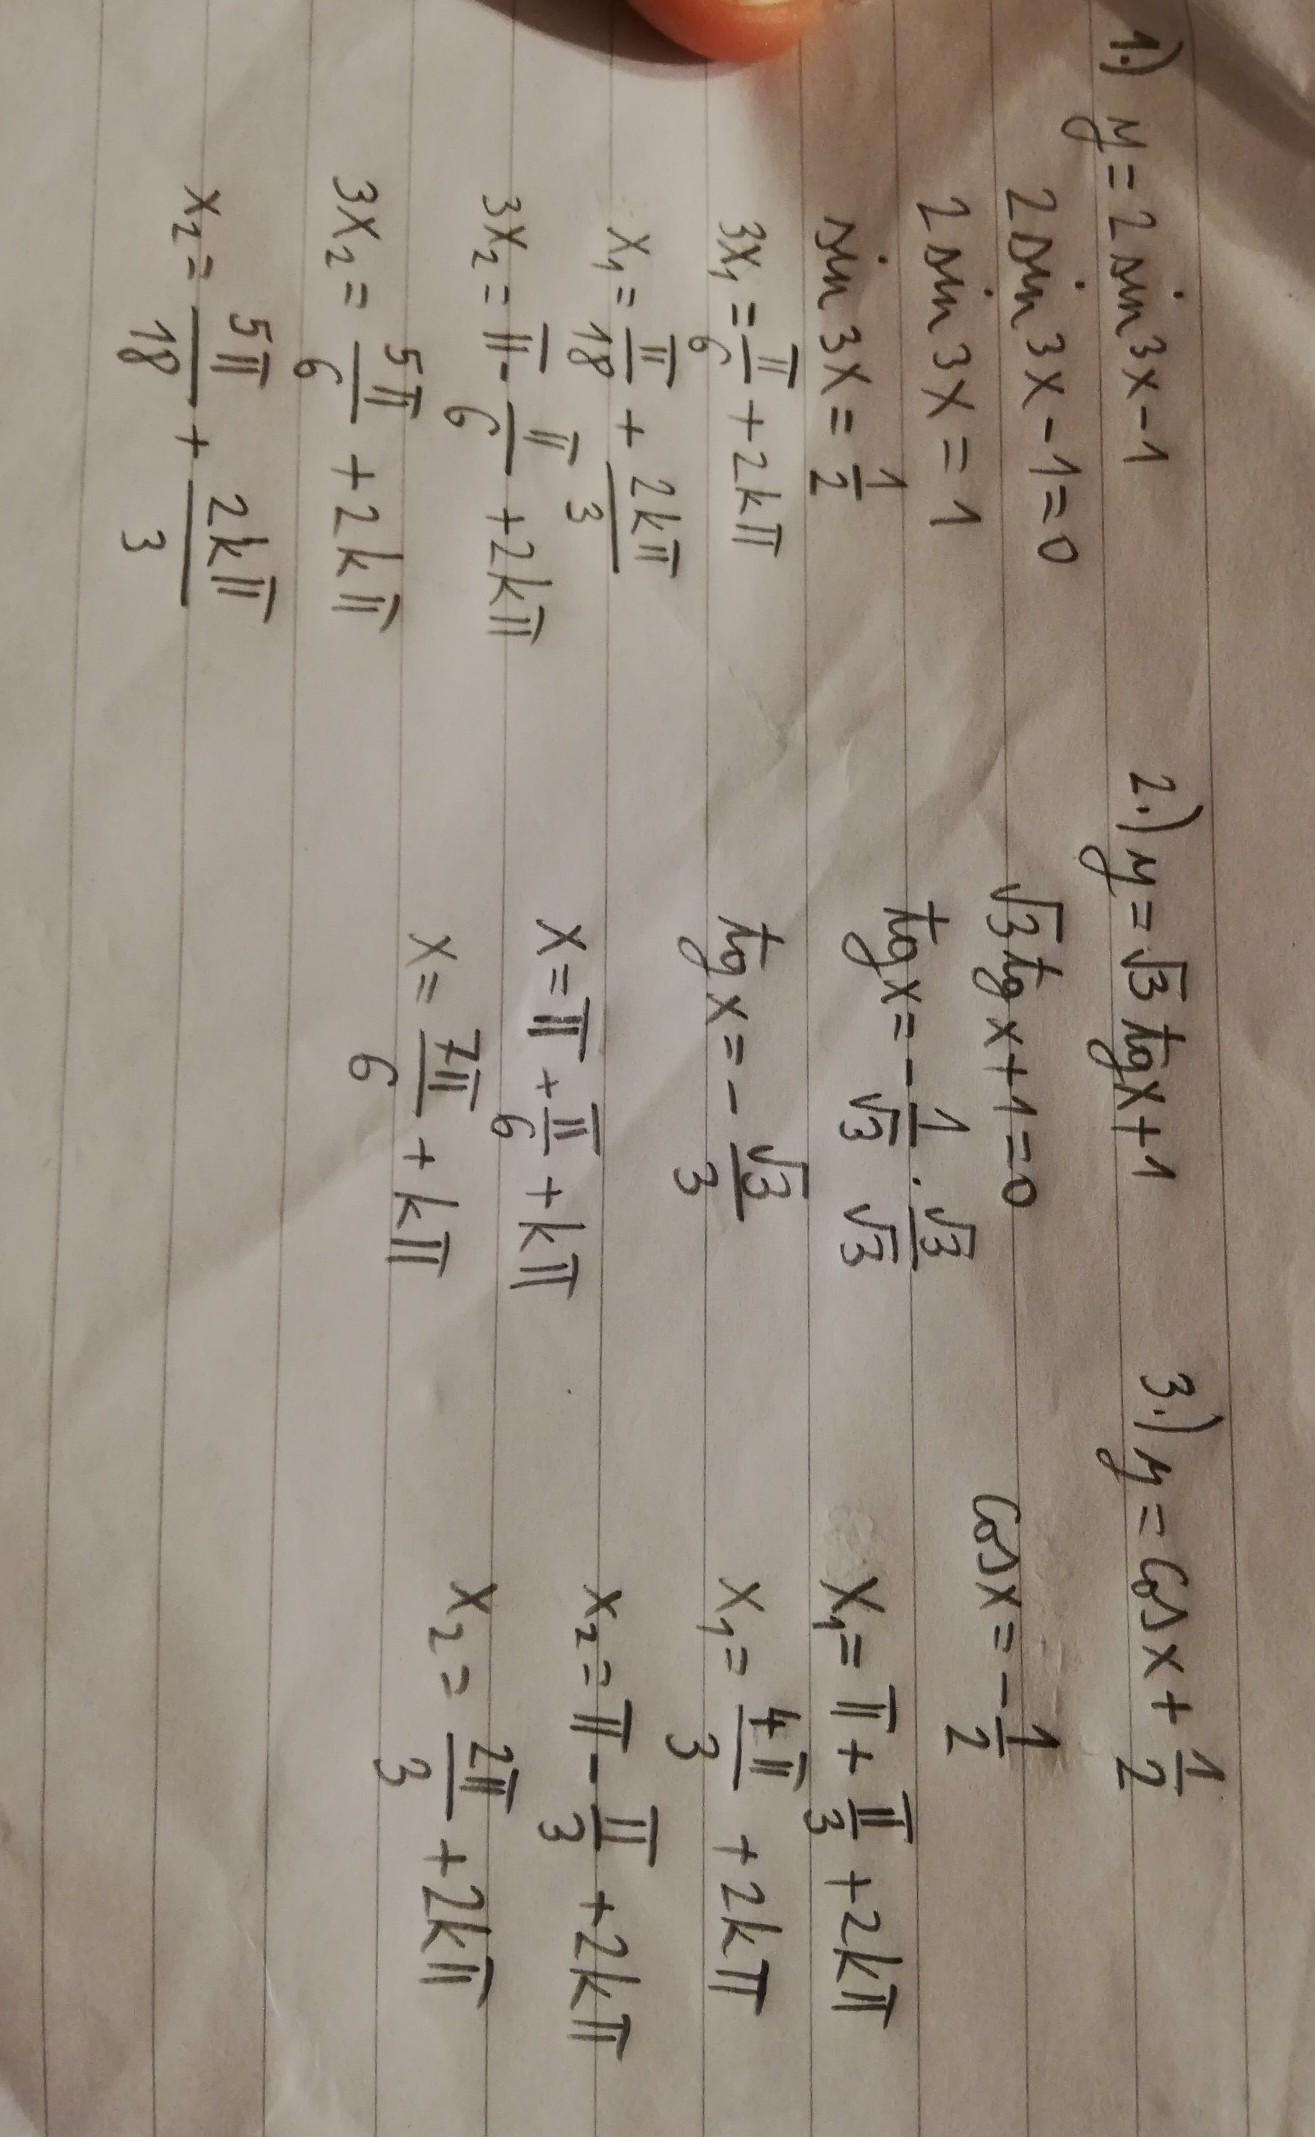 1.) y = 2 sin 3x - 1
2 sin 3x - 1 = 0
2 sin 3x = 1
sin 3x = 1/2
3x₁ = π/6 + 2kπ
x₁ = π/18 + 2kπ/3
3x₂ = π - π/6 + 2kπ
3x₂ = 5π/6 + 2kπ
x₂ = 5π/18 + 2kπ/3
2.) y = √3 tg x + 1
√3 tg x + 1 = 0
tg x = - 1/√3 · √3/√3
tg x = - √3/3
x = π + π/6 + kπ
x = 7π/6 + kπ
3.) y = cos x + 1/2
cos x = - 1/2
x₁ = π + π/3 + 2kπ
x₁ = 4π/3 + 2kπ
x₂ = π - π/3 + 2kπ
x₂ = 2π/3 + 2kπ